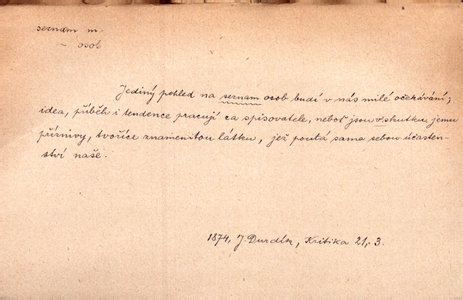 seznam m.
~ osob
Jediný pohled na seznam osob budí v nás milé očekávání;
idea, příběh i tendence pracují za spisovatele, neboť jsou v skutku jemu
příznivy, tvoříce znamenitou látku, jež poutá sama sebou účasten-
ství naše.
1874, J. Durdík, Kritika 21, 3.